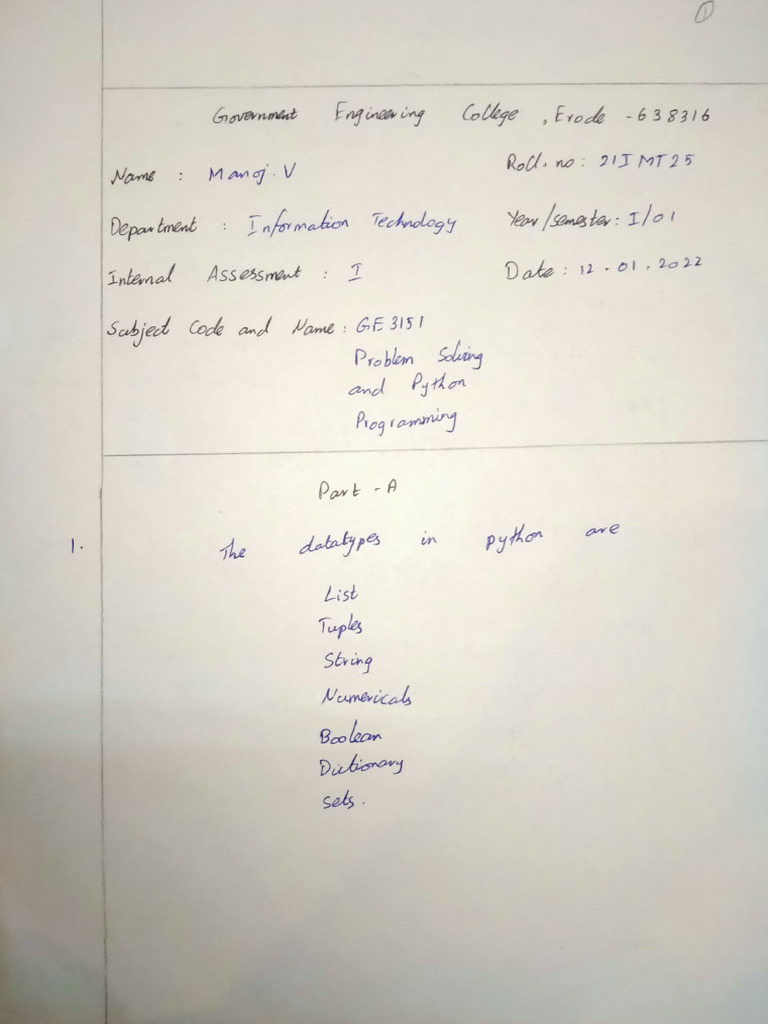 1
Government Engineering College, Erode - 638316
Name : Manoj. V
Roll. no : 21IMT25
Department : Information Technology
Year/semester : I/01
Internal Assessment : I
Date : 12.01.2022
Subject Code and Name : GE3151
Problem Solving
and Python
Programming
Part - A
1. The datatypes in python are
List
Tuples
String
Numericals
Boolean
Dictionary
Sets.